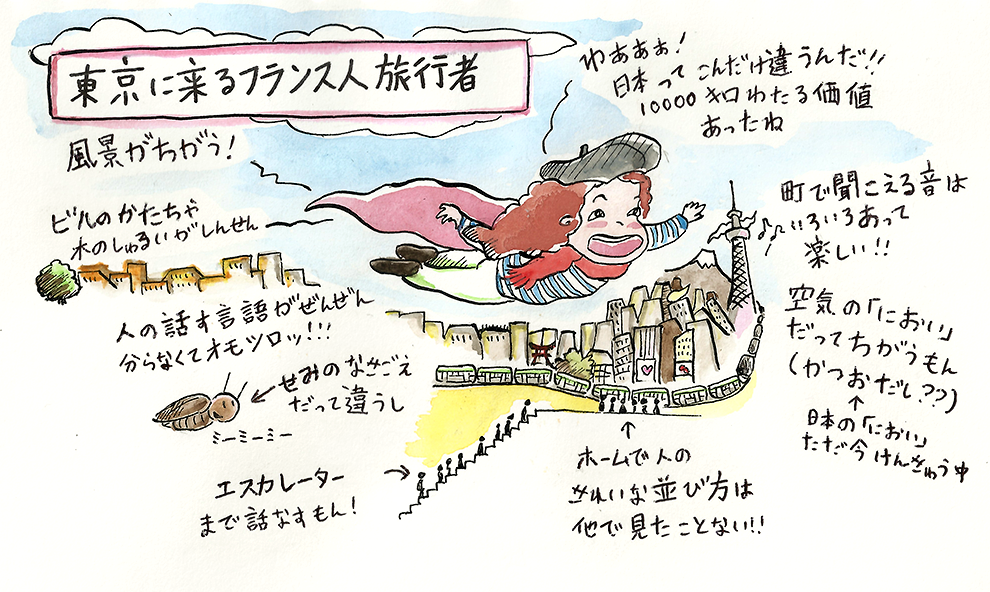 東京に来るフランス人旅行者
わぁぁぁ!
日本ってこんだけ違うんだ!!
10000キロわたる価値
あったね
風景がちがう!
ビルのかたちや
木のしゅるいがしんせん
町で聞こえる音は
いろいろあって
楽しい!!
人の話す言語がぜんぜん
分らなくてオモシロッ!!!
空気の「におい」
だってちがうもん
(かつおだし??)
日本の「におい」
ただ今けんきゅう中
せみのなきごえ
だって違うし
ミーミーミー
エスカレーター
まで話なすもん!
ホームで人の
きれいな並び方は
他で見たことない!!